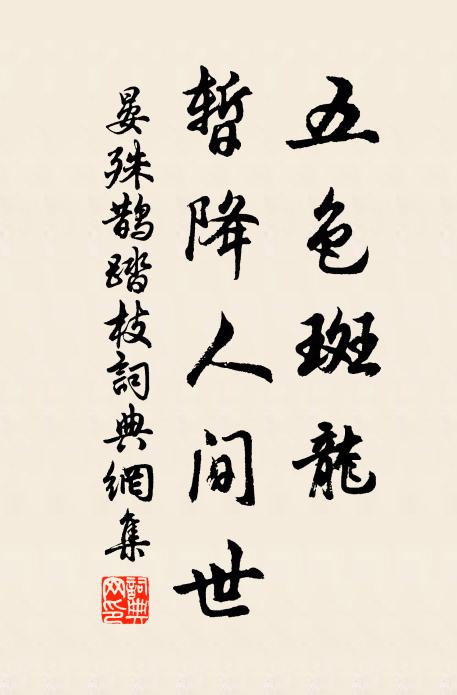 五色斑龍
暫降人间世
晏殊鵲踏枝詞典網集
詞典
网印